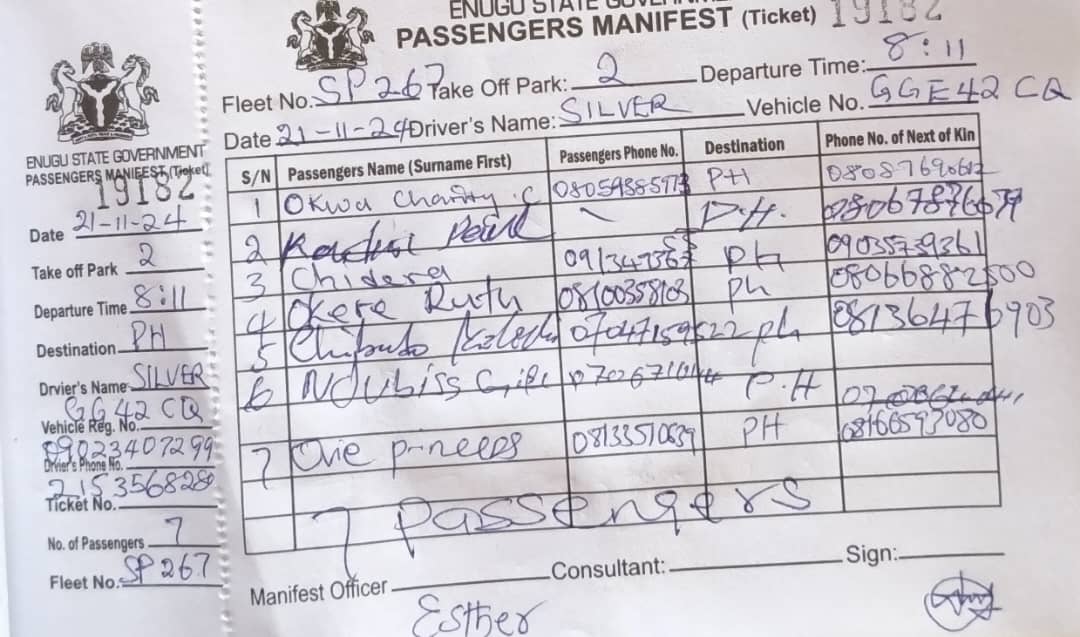 ENUGU STATE GOVERNMENT
PASSENGERS MANIFEST (Ticket)
19182
Date 21-11-24
Take off Park 2
Departure Time 8:11
Destination PH
Drvier's Name SILVER
Vehicle Reg. No. GG 42 CQ
Drvier's Phone No. 09023407299
Ticket No. 215356828
No. of Passengers 7
Fleet No. SP 267
ENUGU STATE
PASSENGERS MANIFEST (Ticket) 19182
Fleet No. SP 267 Take Off Park: 2 Departure Time: 8:11
Date 21-11-24 Driver's Name: SILVER Vehicle No. GGE42 CQ
S/N Passengers Name (Surname First) Passengers Phone No. Destination Phone No. of Next of Kin
1 Okwu Charity .C PH
2 P.H.
3 Chidera ph 09035739361
4 Okere Ruth 08100358103 ph 08066882500
5 07047159522 ph 08136476903
6 P.H
7 Ovie 08133510639 PH
7 Passengers
Manifest Officer Esther Consultant: Sign: